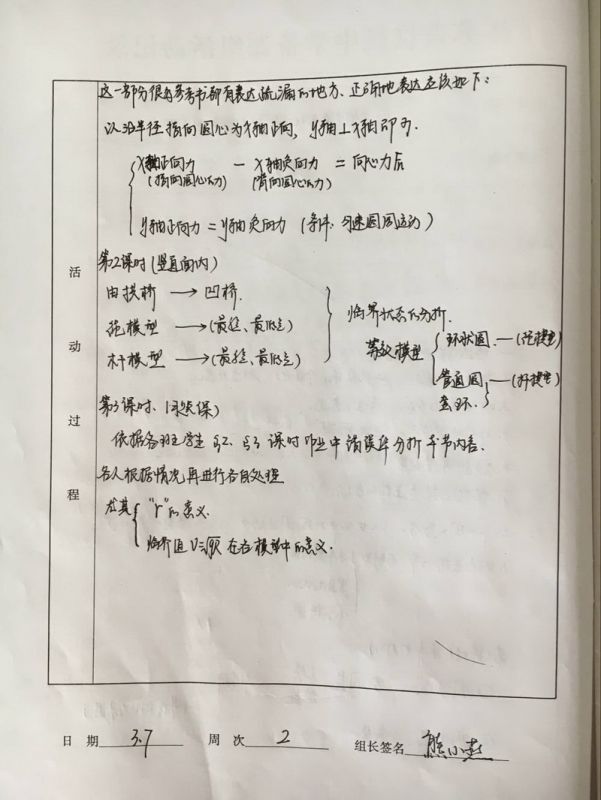 这一部分很多参考书都有表达疏漏的地方、正确地表达应该如下:
以沿半径指向圆心为X轴正向, y轴⊥X轴即可.
X轴正向力 − X轴负向力 = 向心力后
(指向圆心的力) (背向圆心的力)
y轴正向力 = y轴负向力 (条件: 匀速圆周运动)
第2课时(竖直面内)
由拱桥 → 凹桥.
绳模型 → (最高、最低点)
杆模型 → (最高、最低点)
临界状态的分析.
等效模型
环状圆 — (绳模型)
管道圆 — (杆模型)
套环.
第3课时、(习题课)
依据各班学生 §2、§3 课时作业中错误率分析 本节内容.
各人根据情况再进行各自处理
尤其
"r"的意义.
临界值 V=√gR 在各模型中的意义.
活
动
过
程
日 期 3.7 周 次 2 组长签名 熊小燕